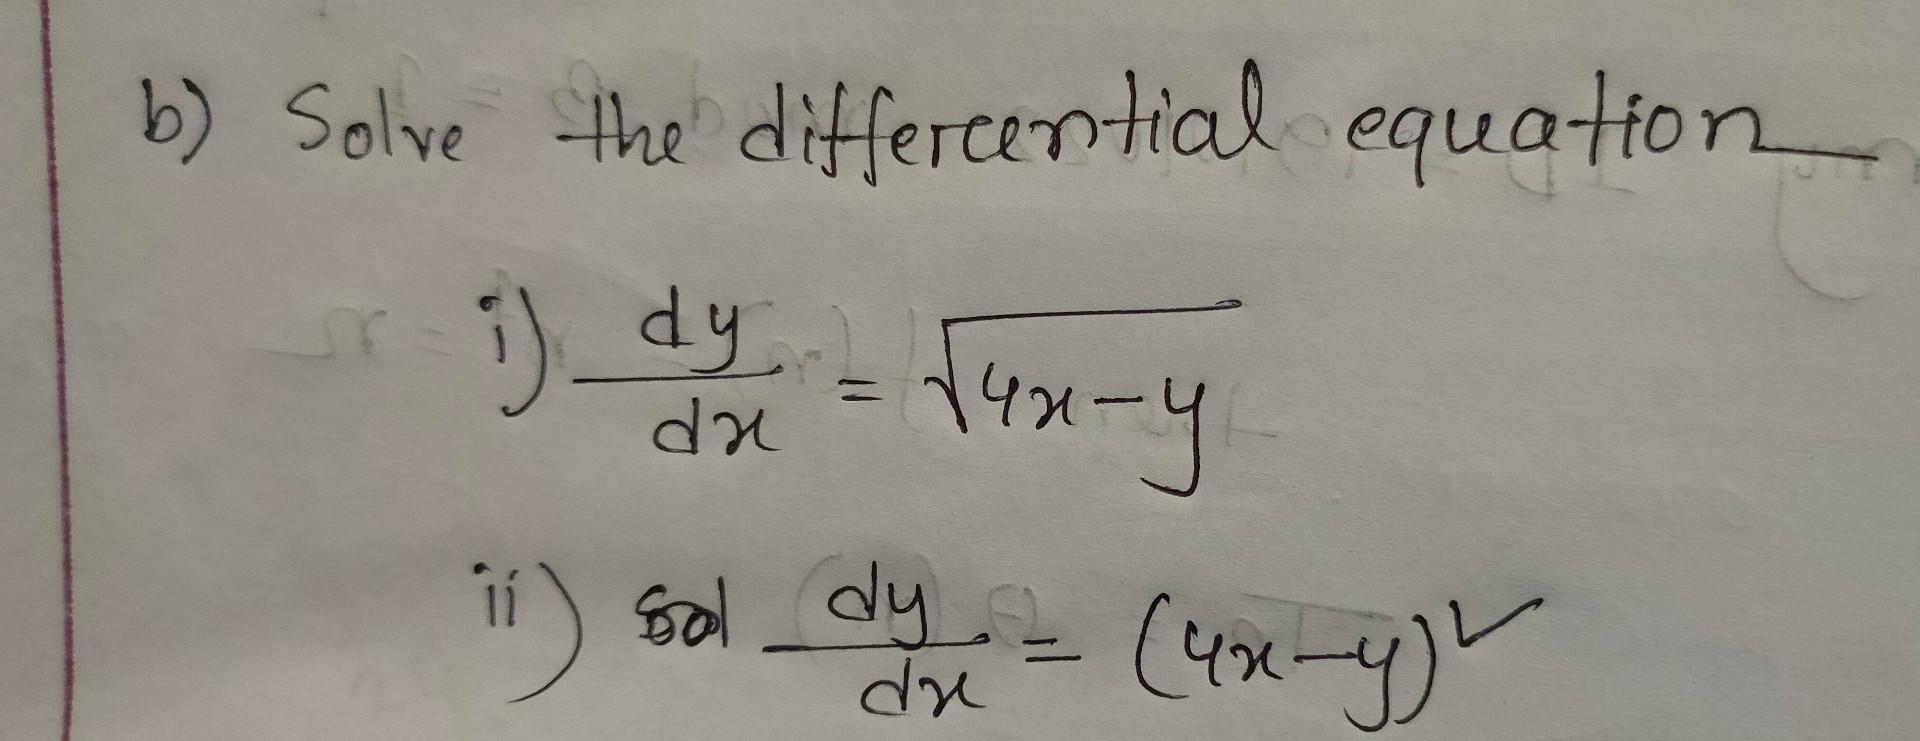 b) Solve the differential equation
i) dy/dx = √(4x-y)
ii) sol dy/dx = (4x-y)²